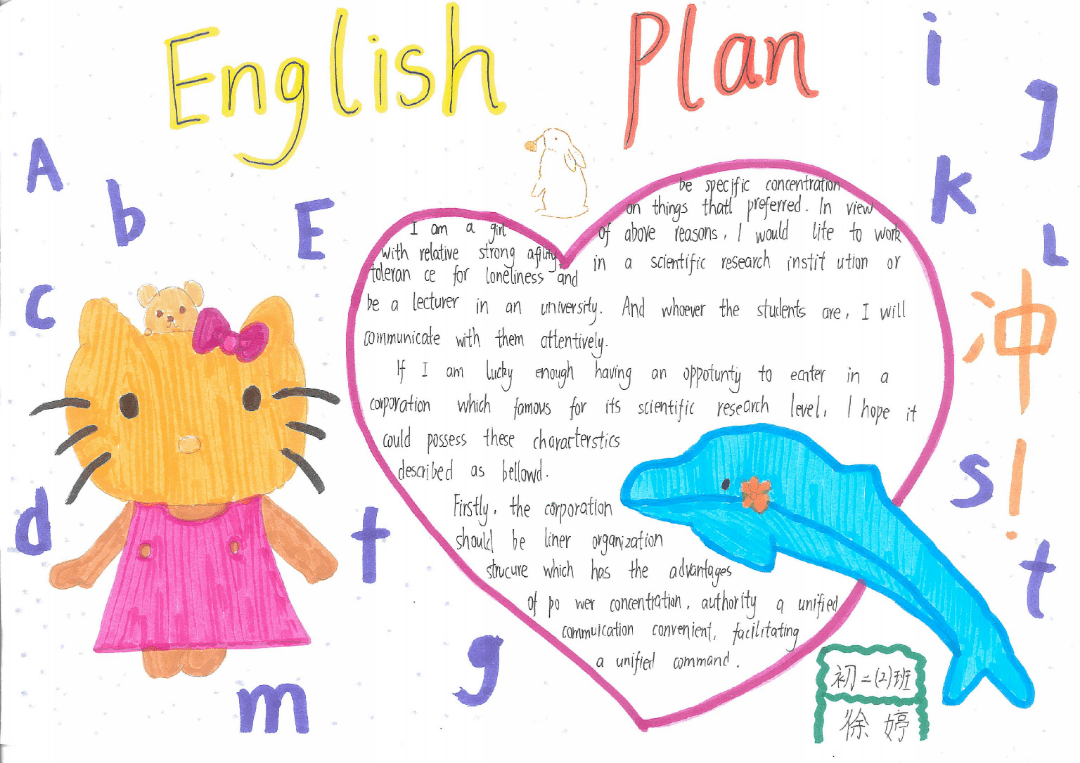 English Plan
i
g
A
b
E
k
L
C
冲!
I am a girl
with relative strong agility
toleran ce for loneliness and
be specific concentration
on things thatI preferred. In view
of above reasons, I would lite to work
in a scientific research instit ution or
be a lecturer in an university. And whoever the students are, I will
communicate with them attentively.
If I am lucky enough having an oppotunty to eanter in a
corporation which famous for its scientific research level, I hope it
could possess these characterstics
described as bellowd.
Firstly, the corporation
should be liner organization
strucure which has the advantages
of po wer concentration, authority a unified
commuication convenient, facilitating
a unified command.
s
d
t
t
g
m
初二(2)班
徐婷